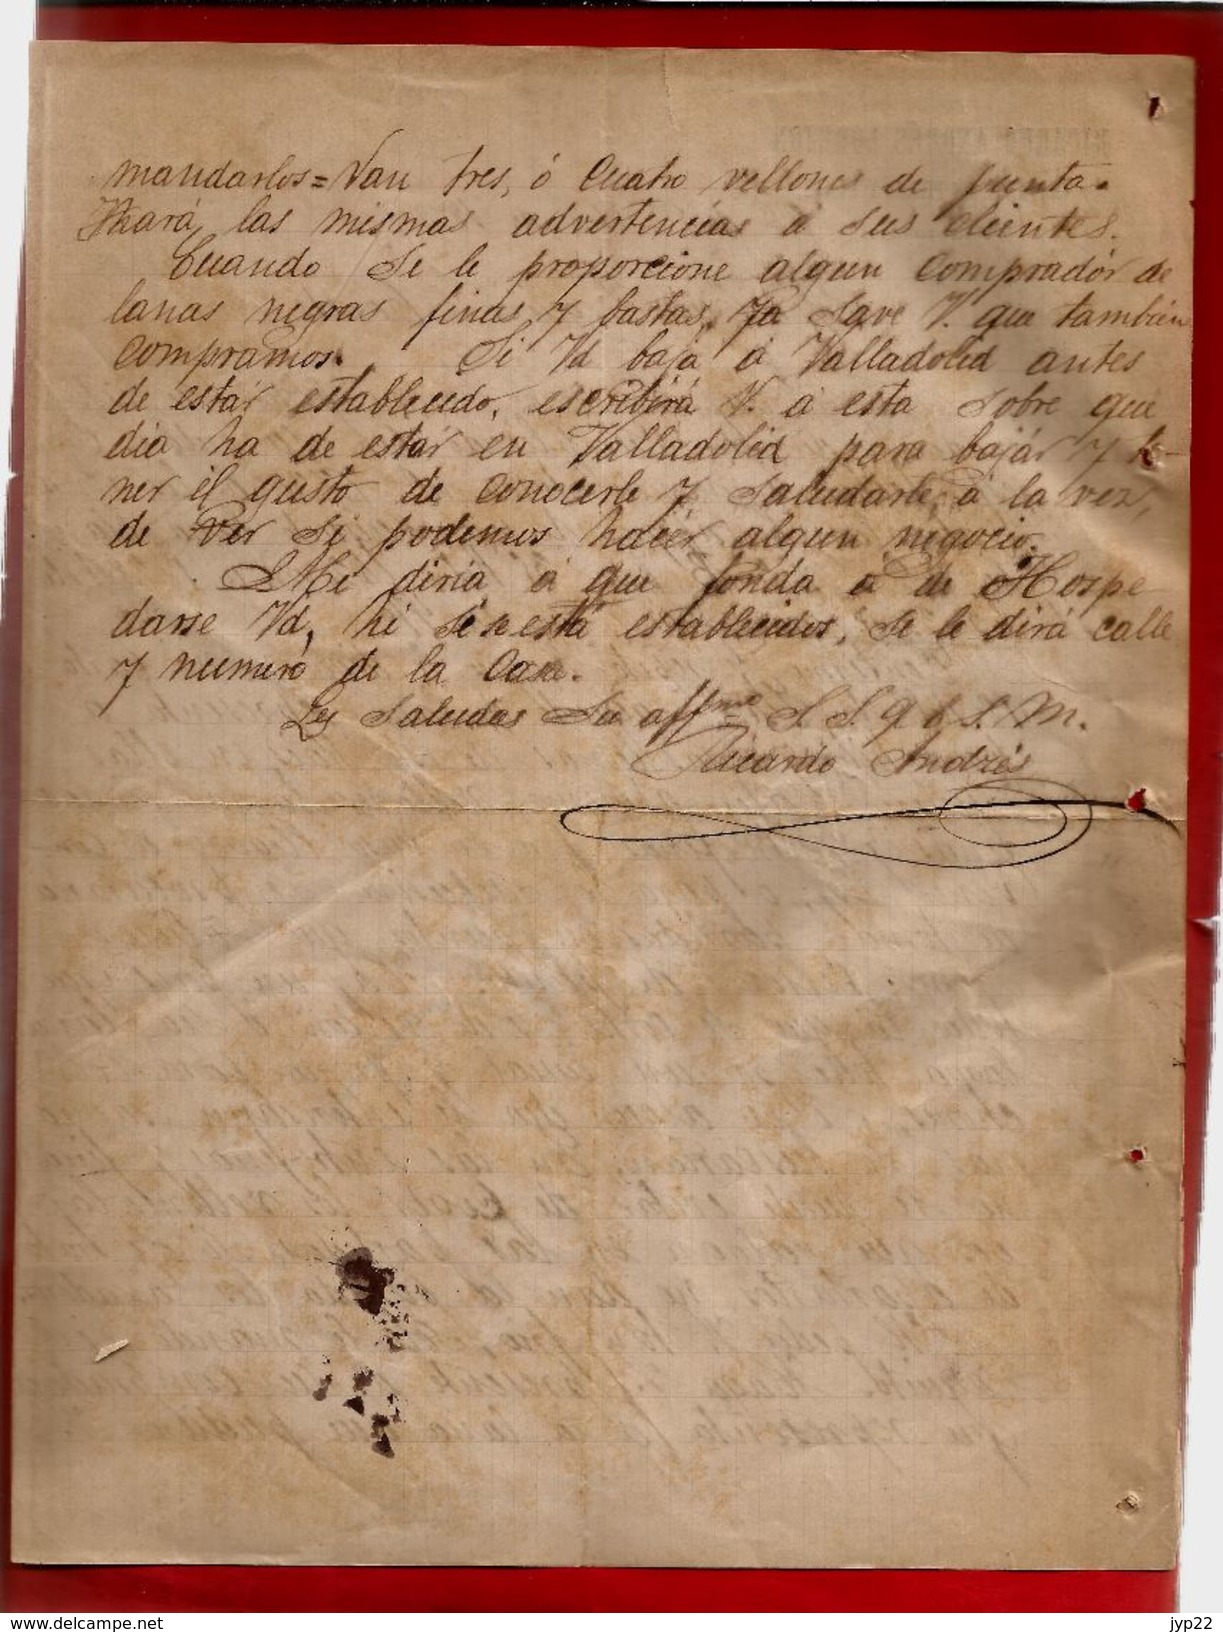 mandarlos = Van tres, ó Cuatro vellones de punta.
Hará las mismas advertencias á sus clientes.
Cuando Se le proporcione algun Comprador de
lanas negras finas y bastas, ya Save V. que tambien
Compramos. Si Vd baja á Valladolid antes
de estár establecido, escribirá V. á esta Sobre que
dia ha de estár en Valladolid para bajár y te-
ner él gusto de Conocerle y Saludarle, á la vez,
de Ver Si podemos hacér algun negocio.
Me diria á que fonda á de Hospe
darse Vd, Si establecidos, Se le dirá calle
y numero de la Casa.
Les Saluda Su affmo S. S. q b S. M.
Ricardo Andrés
delcampe.net
jyp22